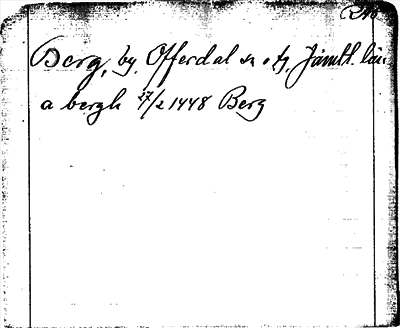 Berg, by, Offerdal sn o tg, Jämtl. län
a bergh 27/2 1448 Berg